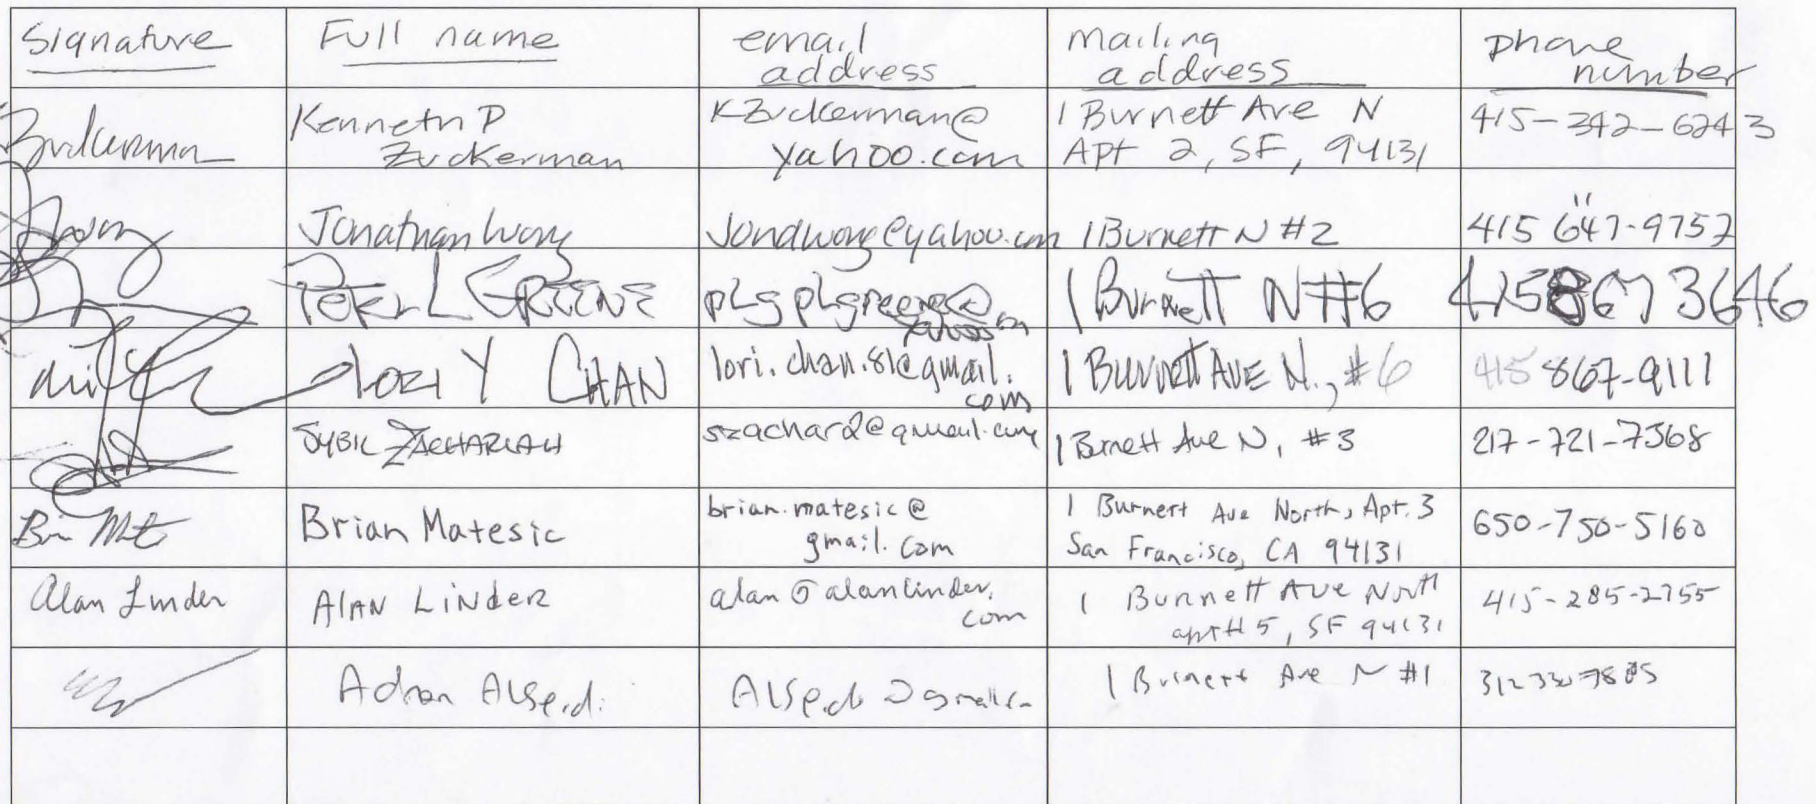 Signature
Full name
email
address
mailing
address
phone
number
Zuckerman
Kenneth P
Zuckerman
KZuckerman@
yahoo.com
1 Burnett Ave N
Apt 2, SF, 94131
415-342-6243
Jonathan Wong
Jondwong@yahoo.com
1 Burnett N #2
415 647-9757
Peter L GREENE
plgreene@
yahoo
1 Burnett N #6
415 867 3646
lori Y CHAN
lori.chan.81@gmail.
com
1 Burnett AVE N., #6
415 867-9111
SYBIL ZACHARIAH
szachar2@gmail.com
1 Burnett Ave N, #3
217-721-7368
Brian Matesic
brian.matesic@
gmail.com
1 Burnett Ave North, Apt. 3
San Francisco, CA 94131
650-750-5160
Alan Linder
AlAN LiNDER
alan@alanlinder.
com
1 Burnett Ave North
apt #5, SF 94131
415-285-2755
1 Burnett Ave N #1